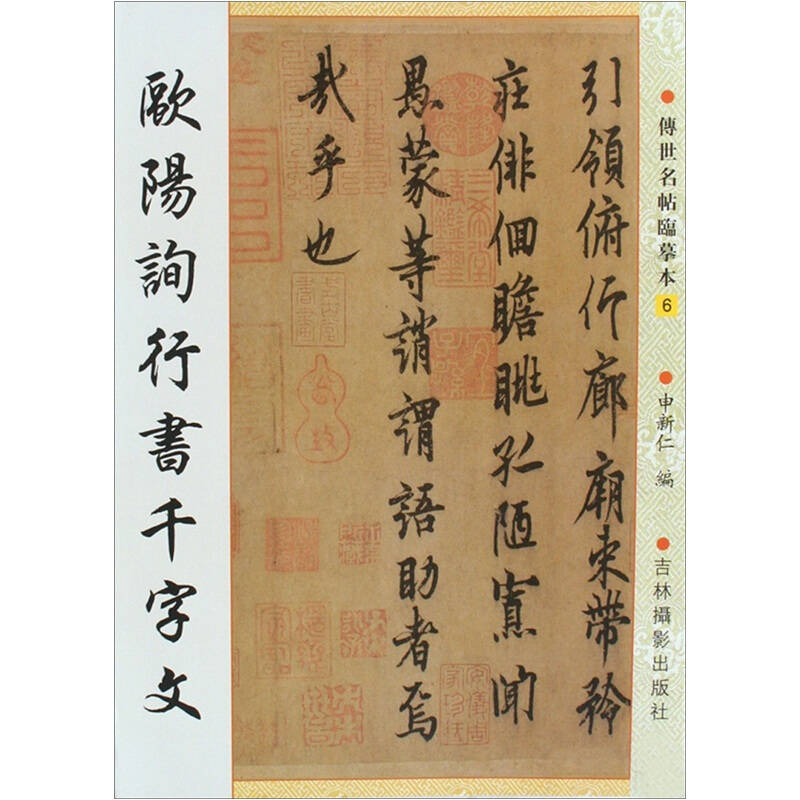 傳世名帖臨摹本 6
申新仁 編
吉林攝影出版社
引領俯仰廊廟束帶矜
莊俳佪瞻眺孤陋寡聞
愚蒙等誚謂語助者焉
哉乎也
歐陽詢行書千字文